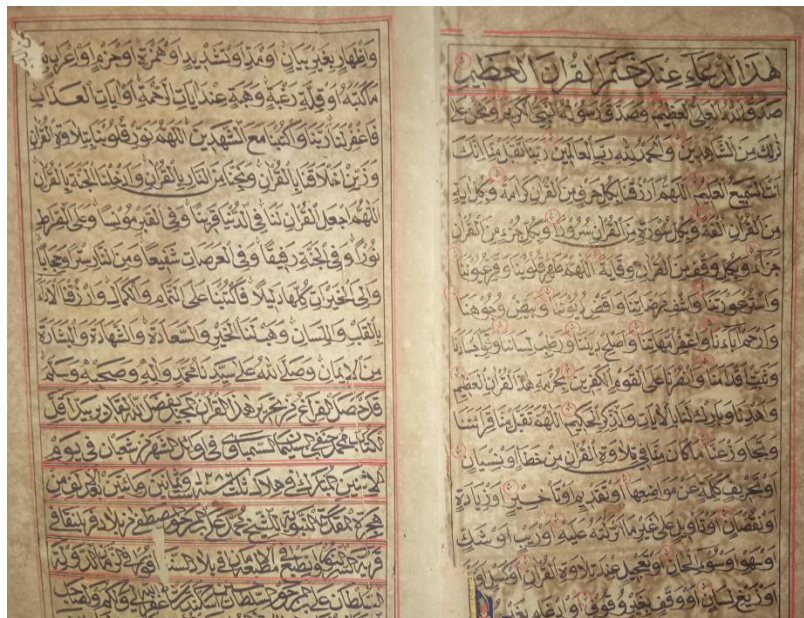 هذا الدعاء عند ختم القران العظيم
صدق الله العلي العظيم وصدق رسوله النبي الكريم ونحن على
ذلك من الشاهدين والحمد لله رب العالمين ربنا تقبل منا انك
انت السميع العليم اللهم ارزقنا بكل حرف من القران كرامة وبكل اية
من القران الفة وبكل سورة من القران سرورا وبكل جزء من القران
جزاء وبكل وقف من القران وقاية اللهم طهر قلوبنا وفرج عيوبنا
واستر عوراتنا واشف مرضانا واقض ديوننا وبيض وجوهنا
وارحم آباءنا واغفر امهاتنا واصلح ديننا ورطب لساننا
وثبت اقدامنا وانصرنا على القوم الكافرين بحرمة هذا القران العظيم
وهدنا وبارك لنا بالايات والذكر الحكيم اللهم تقبل منا قراءتنا
وتجاوز عنا ما كان منا في تلاوة القران من خطا او نسيان
او تحريف كلمة عن مواضعها او تقديم او تاخير او زيادة
او نقصان او تاويل على غير ما انزلته عليه او ريب او شك
او سهو او سوء الحان او تعجيل عند تلاوة القران او كسل او
او زيغ لسان او وقف بغير وقوف او ادغام بغير
واظهار بغير بيان او مد او تشديد او همزة او جزم او اعراب
ما كتبه او قلة رغبة وهبة عند ايات الرحمة او ايات العذاب
فاغفر لنا ربنا واكتبنا مع الشهدين اللهم نور قلوبنا بتلاوة القران
وزين اخلاقنا بالقران ونجنا من النار بالقران وادخلنا الجنة بالقران
اللهم اجعل القران لنا في الدنيا قرينا وفي القبر مونسا وعلى الصراط
نورا وفي الجنة رفيقا وفي العرصات شفيعا ومن النار سترا وحجابا
والى الخيرات كلها دليلا فاكتبنا على التمام والكمال وارزقنا الاداء
بالقلب واللسان وهب لنا الخير والسعادة والشهادة والبشارة
من الايمان وصلى الله على سيدنا محمد واله وصحبه وسلم
قد حصل الفراغ من تحرير هذا القران المجيد بفضل الله القادر بيد اقل
الكتاب محمد في اوائل الشهر شعبان في يوم
الاثنين المبارك في وثمانين ومائتين الف من
هجرة النبوية الشيخ محمد
قرية في بلاد
السلطان على السلطان اسكندر غفر الله